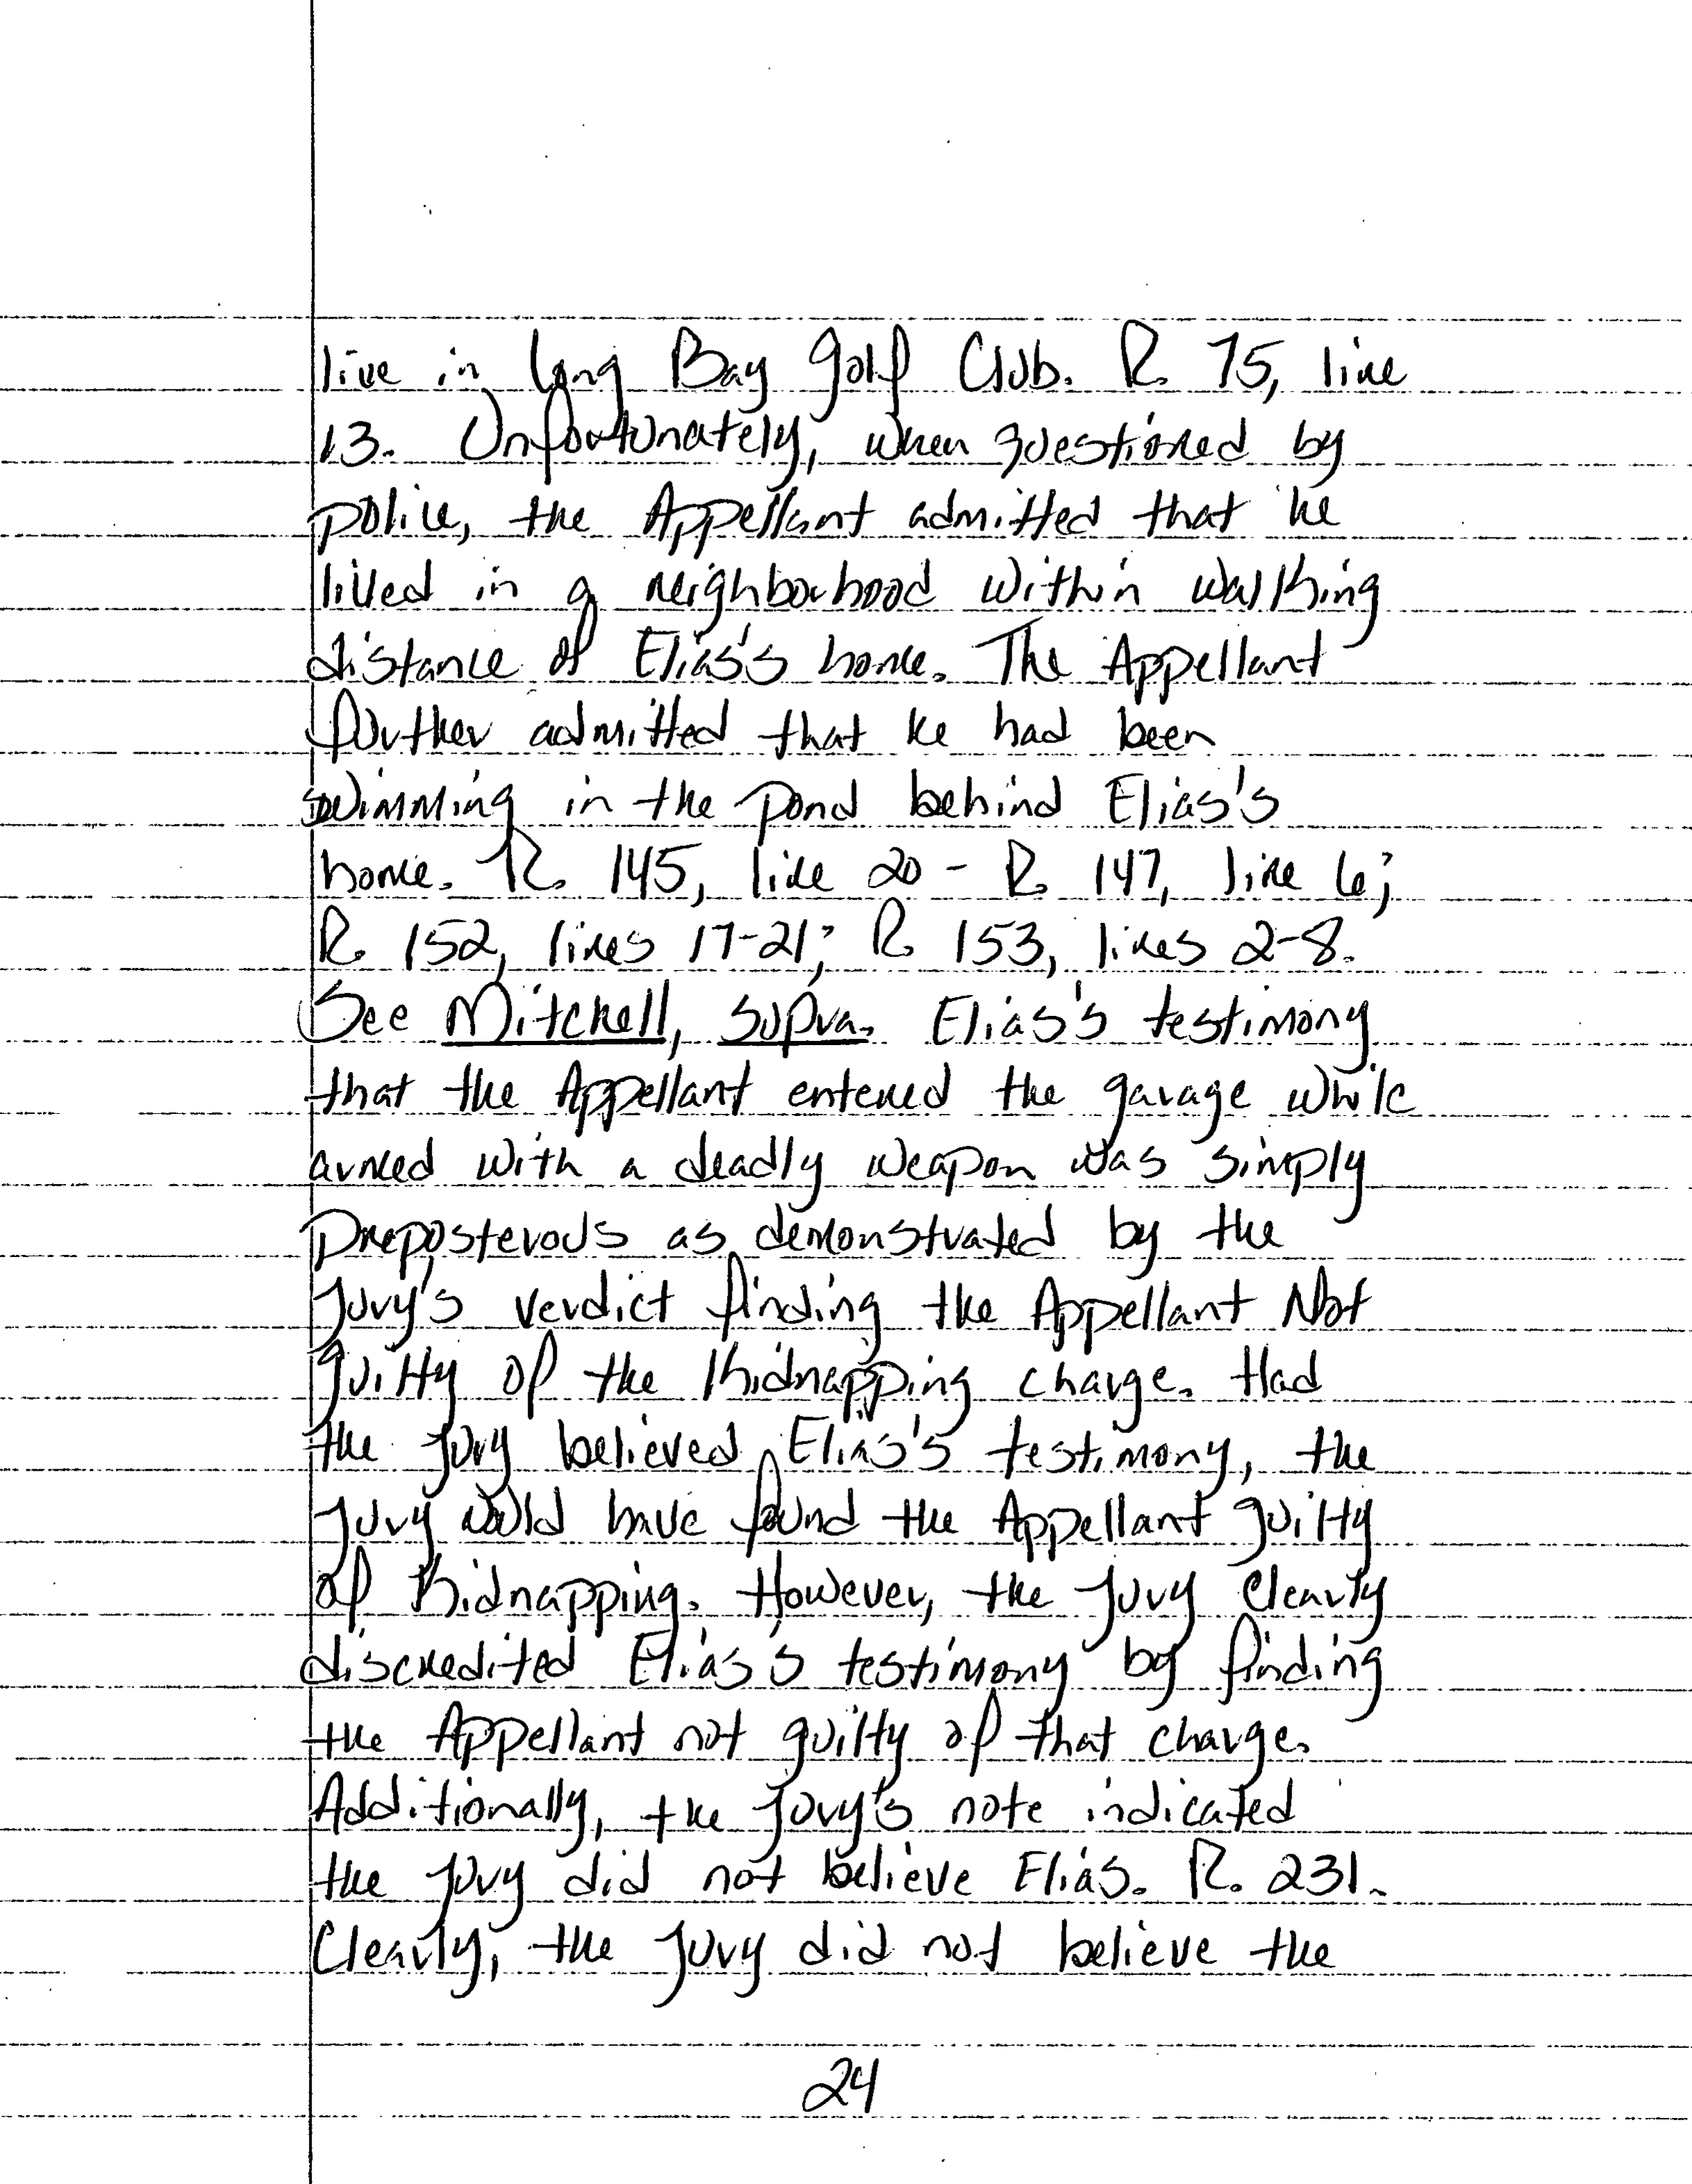 live in Long Bay Golf Club. R. 75, line
13. Unfortunately, when questioned by
police, the Appellant admitted that he
lived in a neighborhood within walking
distance of Elias's home. The Appellant
further admitted that he had been
swimming in the pond behind Elias's
home. R. 145, line 20 - R. 147, line 6;
R. 152, lines 17-21; R. 153, lines 2-8.
See Mitchell, supra. Elias's testimony
that the Appellant entered the garage while
armed with a deadly weapon was simply
preposterous as demonstrated by the
jury's verdict finding the Appellant Not
guilty of the kidnapping charge. Had
the jury believed Elias's testimony, the
jury would have found the Appellant guilty
of kidnapping. However, the jury clearly
discredited Elias's testimony by finding
the Appellant not guilty of that charge.
Additionally, the jury's note indicated
the jury did not believe Elias. R. 231.
Clearly, the jury did not believe the
24